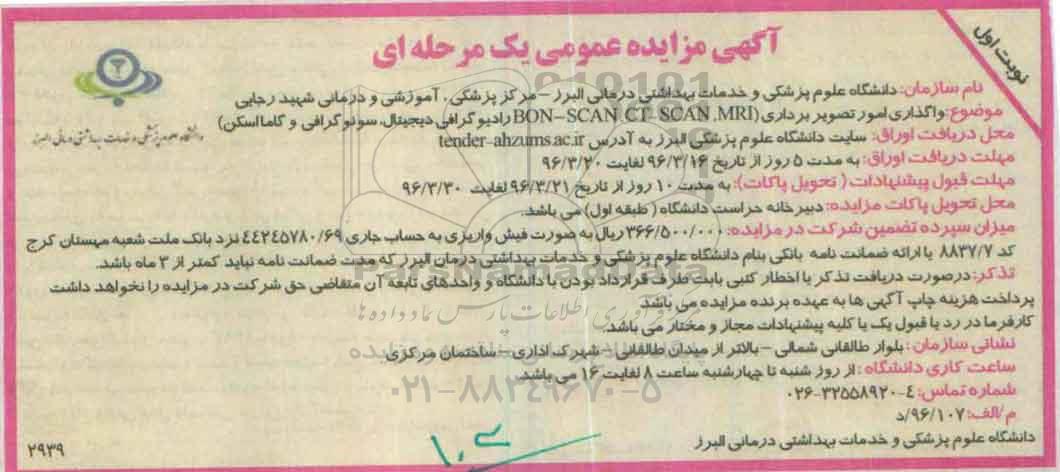 نوبت اول
آگهی مزایده عمومی یک مرحله ای
دانشگاه علوم پزشکی و خدمات بهداشتی درمانی البرز
نام سازمان: دانشگاه علوم پزشکی و خدمات بهداشتی درمانی البرز – مرکز پزشکی، آموزشی و درمانی شهید رجایی
موضوع: واگذاری امور تصویر برداری (BON-SCAN ,CT- SCAN ,MRI رادیو گرافی دیجیتال، سونو گرافی و گامااسکن)
محل دریافت اوراق: سایت دانشگاه علوم پزشکی البرز به آدرس tender-ahzums.ac.ir
مهلت دریافت اوراق: به مدت ۵ روز از تاریخ ۹۶/۳/۱۶ لغایت ۹۶/۳/۲۰
مهلت قبول پیشنهادات ( تحویل پاکات): به مدت ۱۰ روز از تاریخ ۹۶/۳/۲۱ لغایت ۹۶/۳/۳۰
محل تحویل پاکات مزایده: دبیر خانه حراست دانشگاه ( طبقه اول) می باشد.
میزان سپرده تضمین شرکت در مزایده: ۳۶۶/۵۰۰/۰۰۰ ریال به صورت فیش واریزی به حساب جاری ۴۴۲۴۵۷۸۰/۶۹ نزد بانک ملت شعبه مهستان کرج
کد ۸۸۳۷/۷ یا ارائه ضمانت نامه بانکی بنام دانشگاه علوم پزشکی و خدمات بهداشتی درمان البرز که مدت ضمانت نامه نباید کمتر از ۳ ماه باشد.
تذکر: درصورت دریافت تذکر یا اخطار کتبی بابت طرف قرارداد بودن با دانشگاه و واحدهای تابعه آن متقاضی حق شرکت در مزایده را نخواهد داشت
پرداخت هزینه چاپ آگهی ها به عهده برنده مزایده می باشد.
کارفرما در رد یا قبول یک یا کلیه پیشنهادات مجاز و مختار می باشد.
نشانی سازمان: بلوار طالقانی شمالی – بالاتر از میدان طالقانی – شهرک اداری – ساختمان مرکزی
ساعت کاری دانشگاه: از روز شنبه تا چهارشنبه ساعت ۸ لغایت ۱۶ می باشد.
شماره تماس: ۴-۳۲۵۵۸۹۲۰-۰۲۶
م/الف: ۹۶/۱۰۷/د
دانشگاه علوم پزشکی و خدمات بهداشتی درمانی البرز
۲۹۳۹
ParsNamadData
فرآوری اطلاعات پارس نماد داده ها
۰۲۱-۸۸۳۴۹۶۷۰-۵